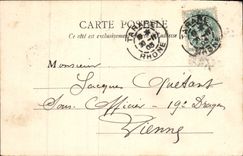 CARTE POSTALE
Ce côté est exclusivement
TARARE
RHONE
Monsieur
Jacques Quétant
Sous Officier - 19e Dragons
Vienne